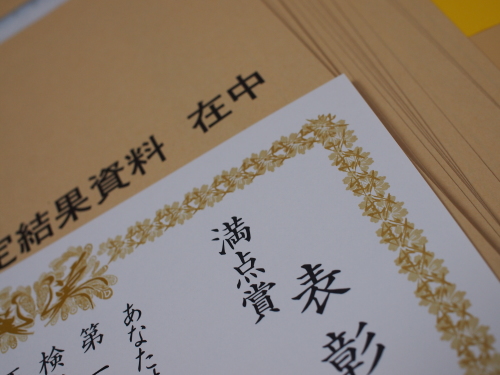 定結果資料 在中
表彰
満点賞
あなた
第一
検